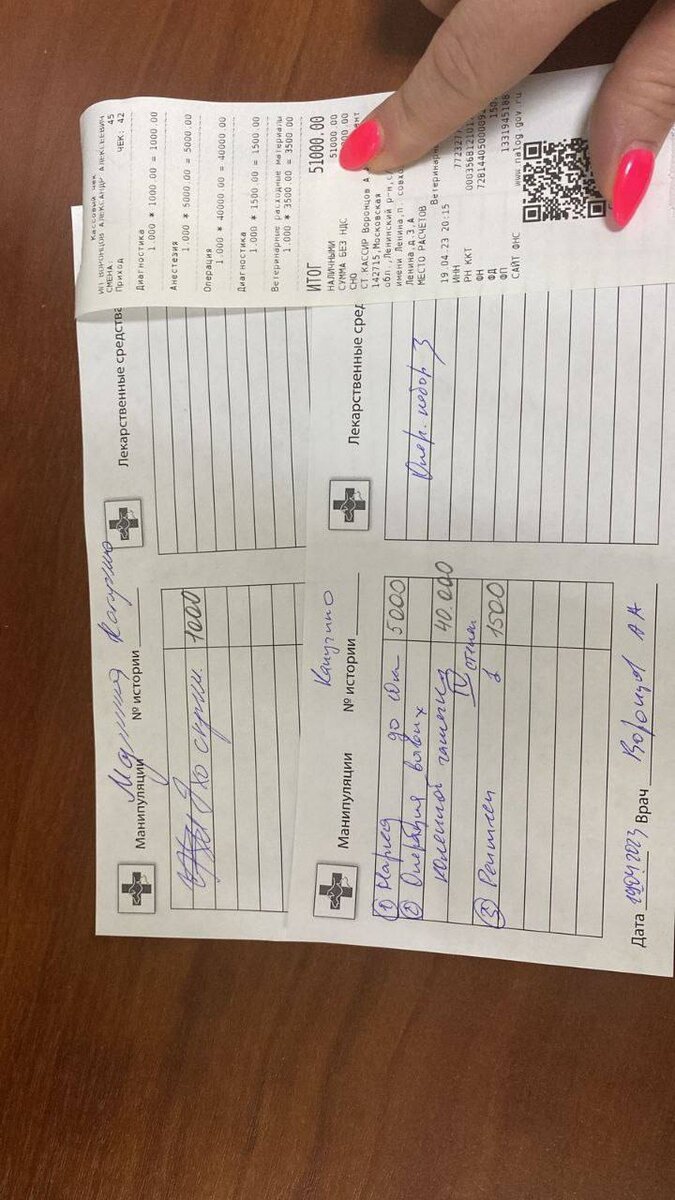 Кассовый чек
ИП ВОРОНЦОВ АЛЕКСАНДР АЛЕКСЕЕВИЧ
СМЕНА 45
Приход ЧЕК: 42
Диагностика
1.000 * 1000.00 = 1000.00
Анестезия
1.000 * 5000.00 = 5000.00
Операция
1.000 * 40000.00 = 40000.00
Диагностика
1.000 * 1500.00 = 1500.00
Ветеринарные расходные материалы
1.000 * 3500.00 = 3500.00
ИТОГ 51000.00
НАЛИЧНЫМИ 51000.00
СУММА БЕЗ НДС
СНО
СТ.КАССИР Воронцов А
142715,Московская
обл.,Ленинский р-н,с
имени Ленина,п. совхо
Ленина,д.3,А
МЕСТО РАСЧЕТОВ Ветеринарн
19.04.23 20:15
ИНН
РН ККТ
ФН
ФД 150
ФП
САЙТ ФНС www.nalog.gov.ru
Капучино
Манипуляции № истории Лекарственные средства
Эхо скрин. 1000
Капучино
Манипуляции № истории Лекарственные сред
① Наркоз до 10кг 5000
② Операция вывих
коленной чашечки 40.000
IV степени
③ Рентген 1500
Опер. набор 3
Дата 19.04.2023 Врач Воронцов АА